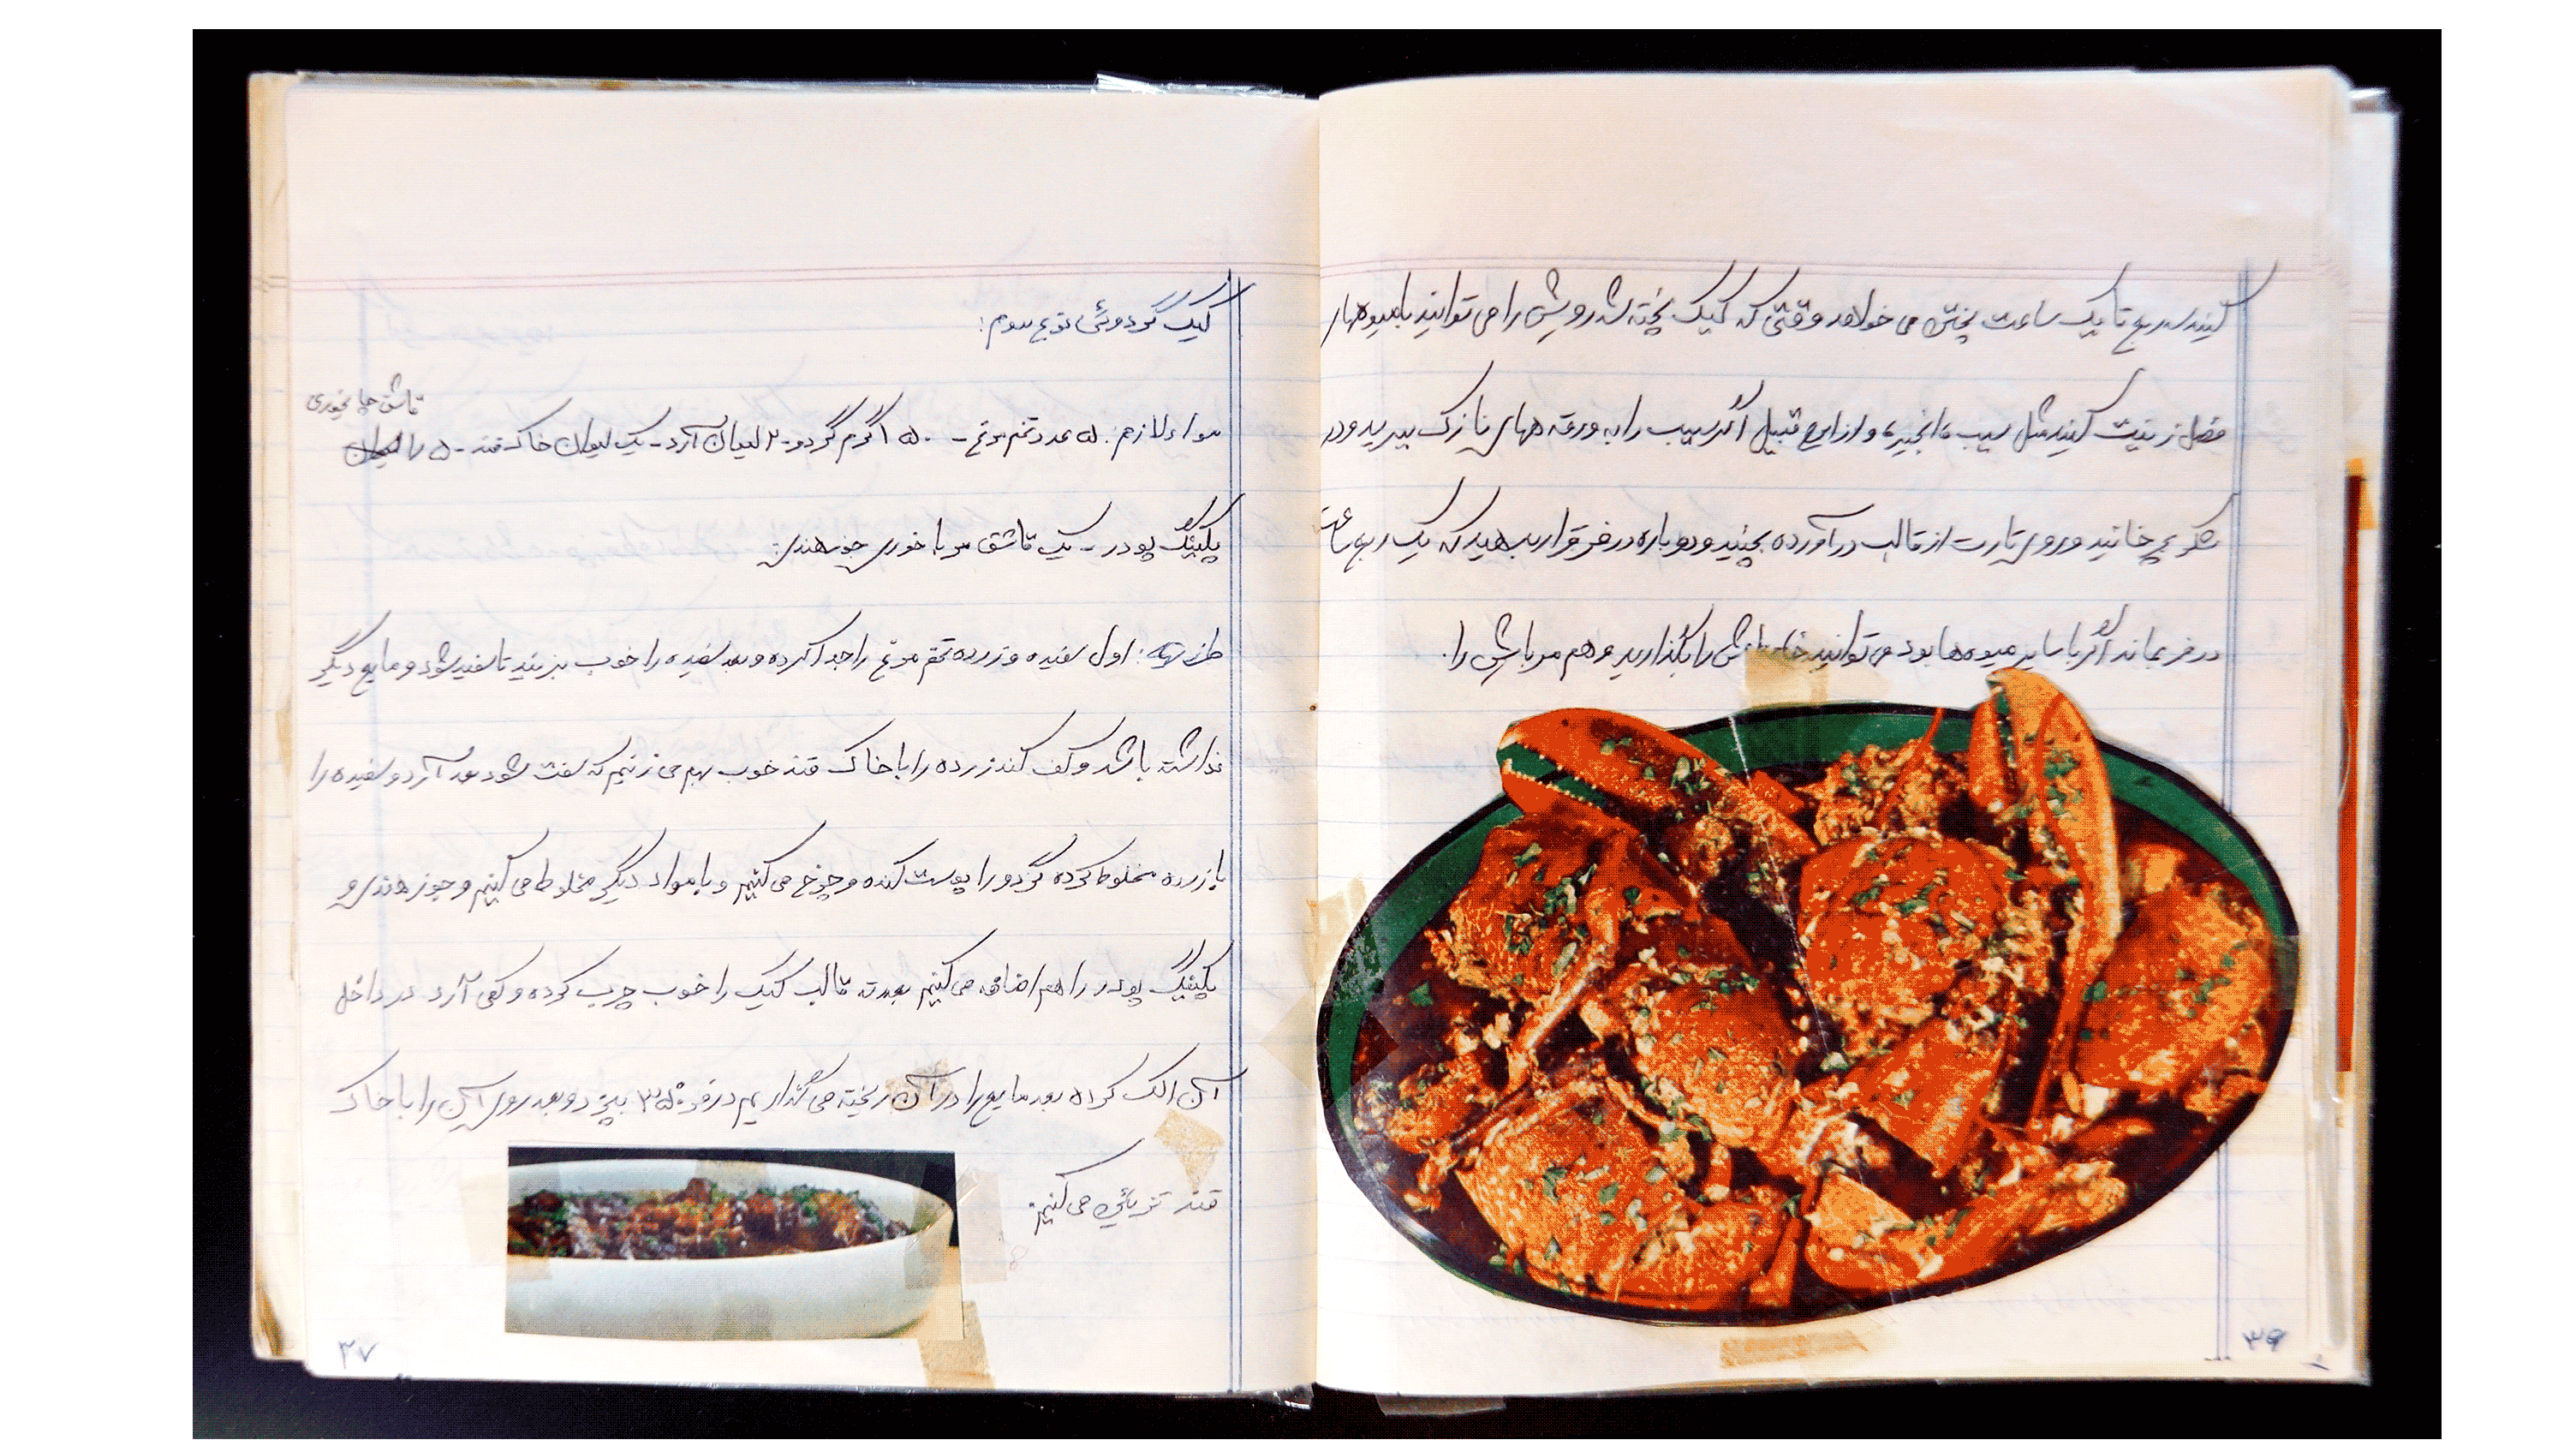 کنید سه ربع تا یک ساعت پختن می خواهد وقتی که کیک پخته شد رویش را می توانید با میوه های
فصل زینت کنید مثل سیب، انجیر، و از این قبیل اگر سیب را به ورقه های نازک ببرید و در
شکر بچرخانید و روی تارت از قالب درآورده بچینید و دوباره در فر قرار بدهید که یک ربع ساعت
در فر بماند اگر با سایر میوه ها بود می توانید خامه اش را بگذارید و هم مرباش را.
۳۶
کیک گردوئی نوع سوم:
مواد لازم: ۵ عدد تخم مرغ - ۱۵۰ گرم گردو - ۲ لیوان آرد - یک لیوان خاک قند - ۱/۵
قاشق چایخوری
بکینگ پودر - یک قاشق مرباخوری جوز هندی:
طرز تهیه: اول سفیده و زرده تخم مرغ را جدا کرده و بعد سفیده را خوب بزنید تا سفید شود و مایع دیگر
نداشته باشد و کف کند زرده را با خاک قند خوب بهم می زنیم که سفت شود بعد آرد و سفیده را
با زرده مخلوط کرده گردو را پوست کنده و چرخ می کنیم و با مواد دیگر مخلوط می کنیم و جوز هندی و
بکینگ پودر را هم اضافه می کنیم بعد ته قالب کیک را خوب چرب کرده و کمی آرد در داخل
آن الک کرده بعد مایع را در آن ریخته می گذاریم در فر ۳۵۰° بپزد و بعد روی آن را با خاک
قند تزیین می کنیم.
۳۷